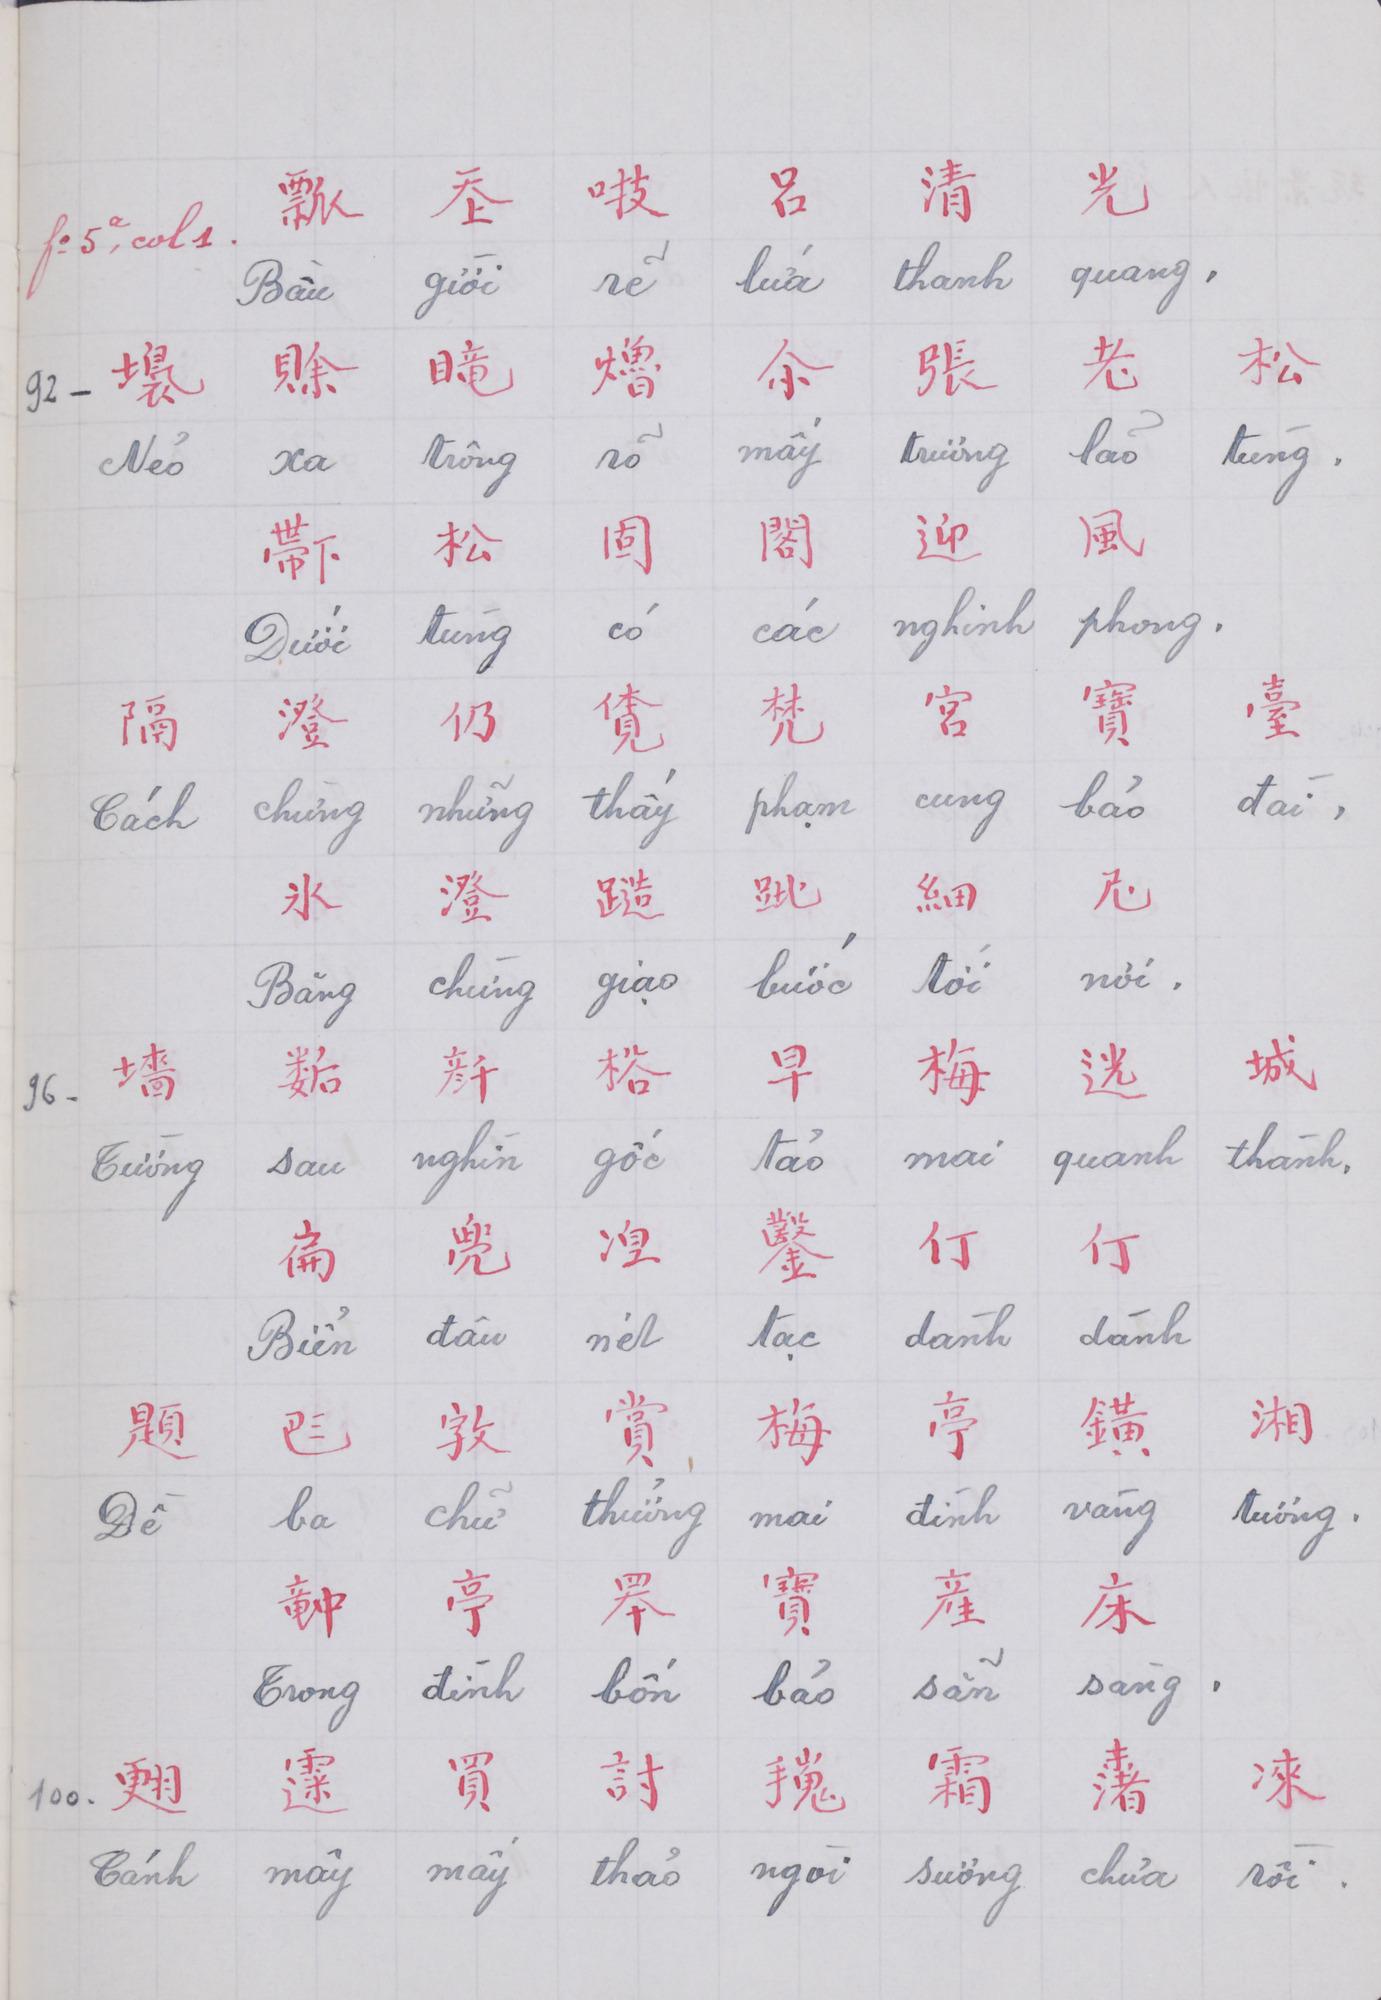 fº 5ª, col 1.
瓢 𡗶 𠯅 呂 清 光
Bầu giời rẽ lứa thanh quang,
92 – 壊 賒 𥉫 𤑟 余 張 老 松
Nẻo xa trông rõ mấy trương lão tùng.
𤲂 松 固 閣 迎 風
Dưới tùng có các nghinh phong.
隔 澄 仍 𧡊 梵 宮 寶 臺
Cách chừng những thấy phạm cung bảo đài,
氷 澄 𨅉 𨀈 細 尼
Băng chừng giạo bước tới nơi.
96 – 墻 𢖖 𠦳 㭲 早 梅 𨒺 城
Tường sau nghìn gốc tảo mai quanh thành.
扁 兠 湼 鑿 仃 仃
Biển đâu nét tạc dành dành
題 𠀧 𡦂 賞 梅 亭 鐄 湘
Đề ba chữ thưởng mai đình vàng tương.
𥪝 亭 𦊚 寶 産 床
Trong đình bốn bảo sẵn sàng,
100. 𦑃 𩄲 買 討 𢵋 霜 渚 淶
Cánh mây mấy thảo ngòi sương chửa rồi.